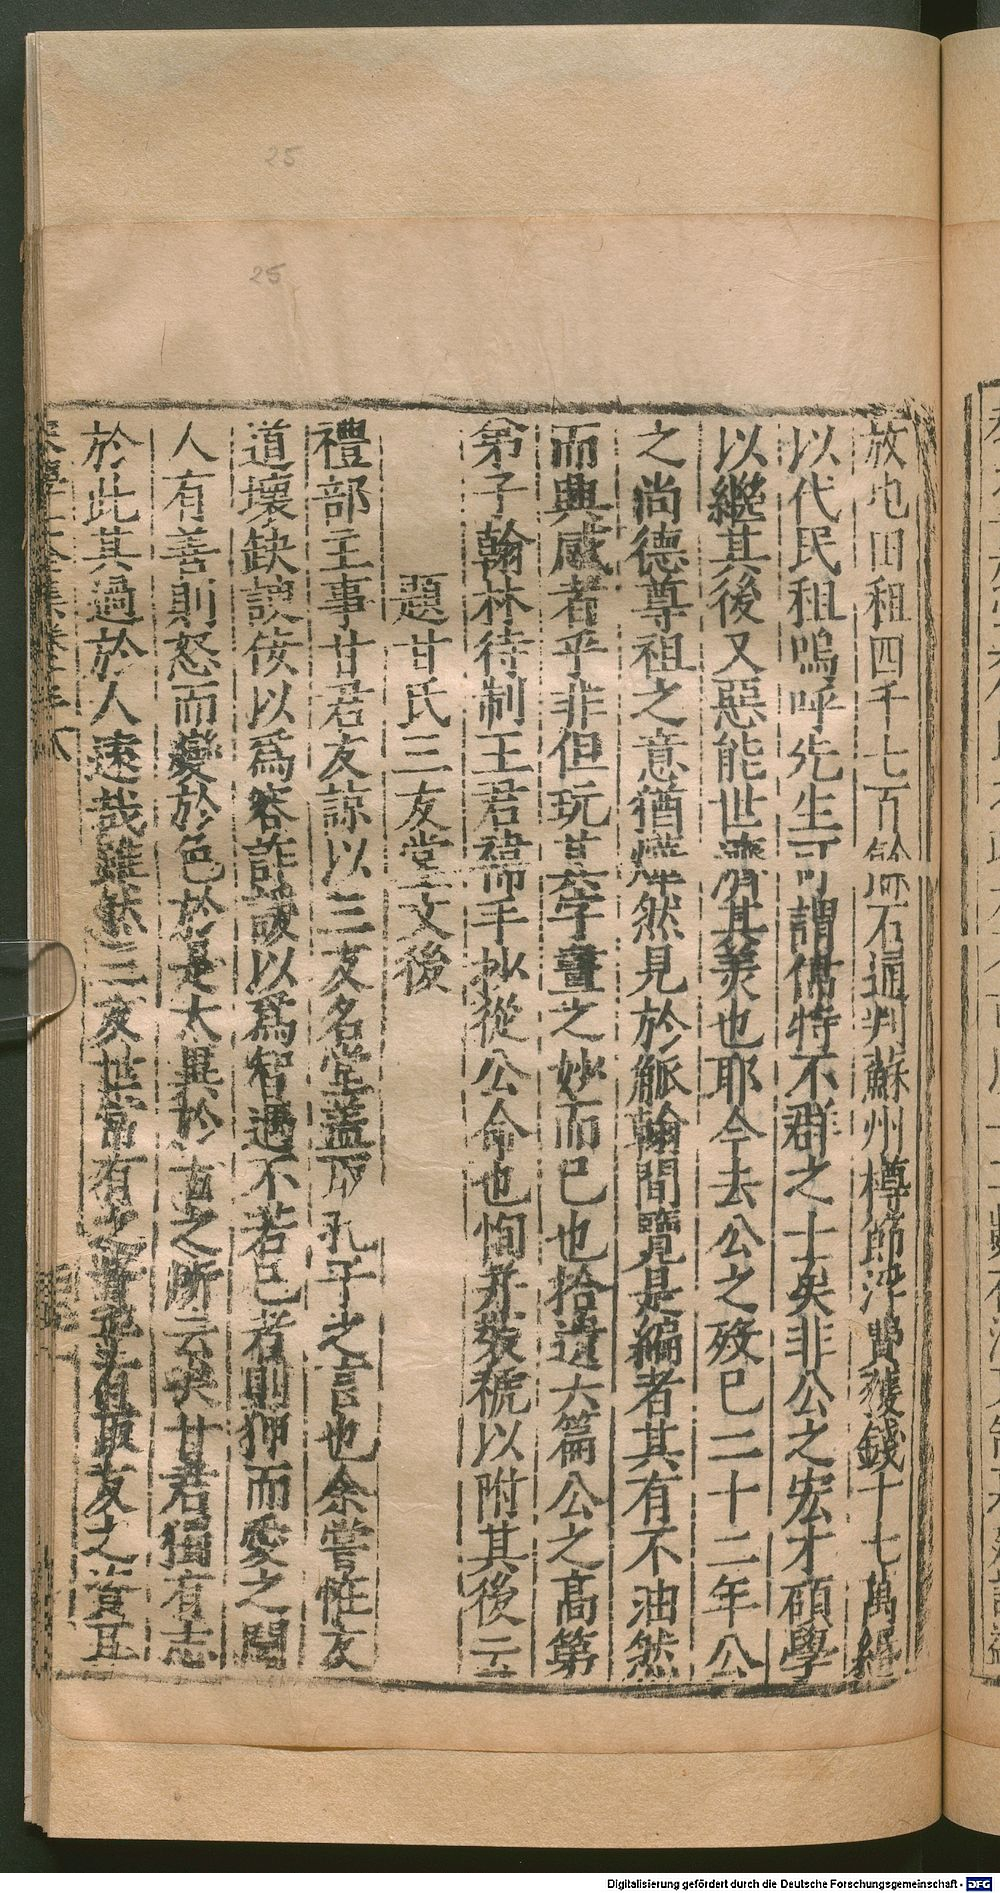 25
25
放地田租四千七百餘石通判蘇州樽節浮費獲錢十七萬緡
以代民租嗚呼先生可謂倜特不群之士矣非公之宏才碩學
以繼其後又惡能世濟其美也耶今去公之歿已二十二年公
之尚德尊祖之意猶燁然見於觚翰間覽是編者其有不油然
而興感者乎非但玩其字畫之妙而已也拾遺六篇公之高第
弟子翰林待制王君禕手抄從公命也恂并敬號以附其後云
題甘氏三友堂文後
禮部主事甘君友諒以三友名堂蓋取孔子之言也余嘗恠友
道壞缺諛佞以爲容詐諼以爲智遇不若已者則狎而愛之聞
人有善則怒而變於色於是太異於古之所云矣甘君獨有志
於此其過於人遠哉雖然三友世常有之皆友之資且
Digitalisierung gefördert durch die Deutsche Forschungsgemeinschaft - DFG